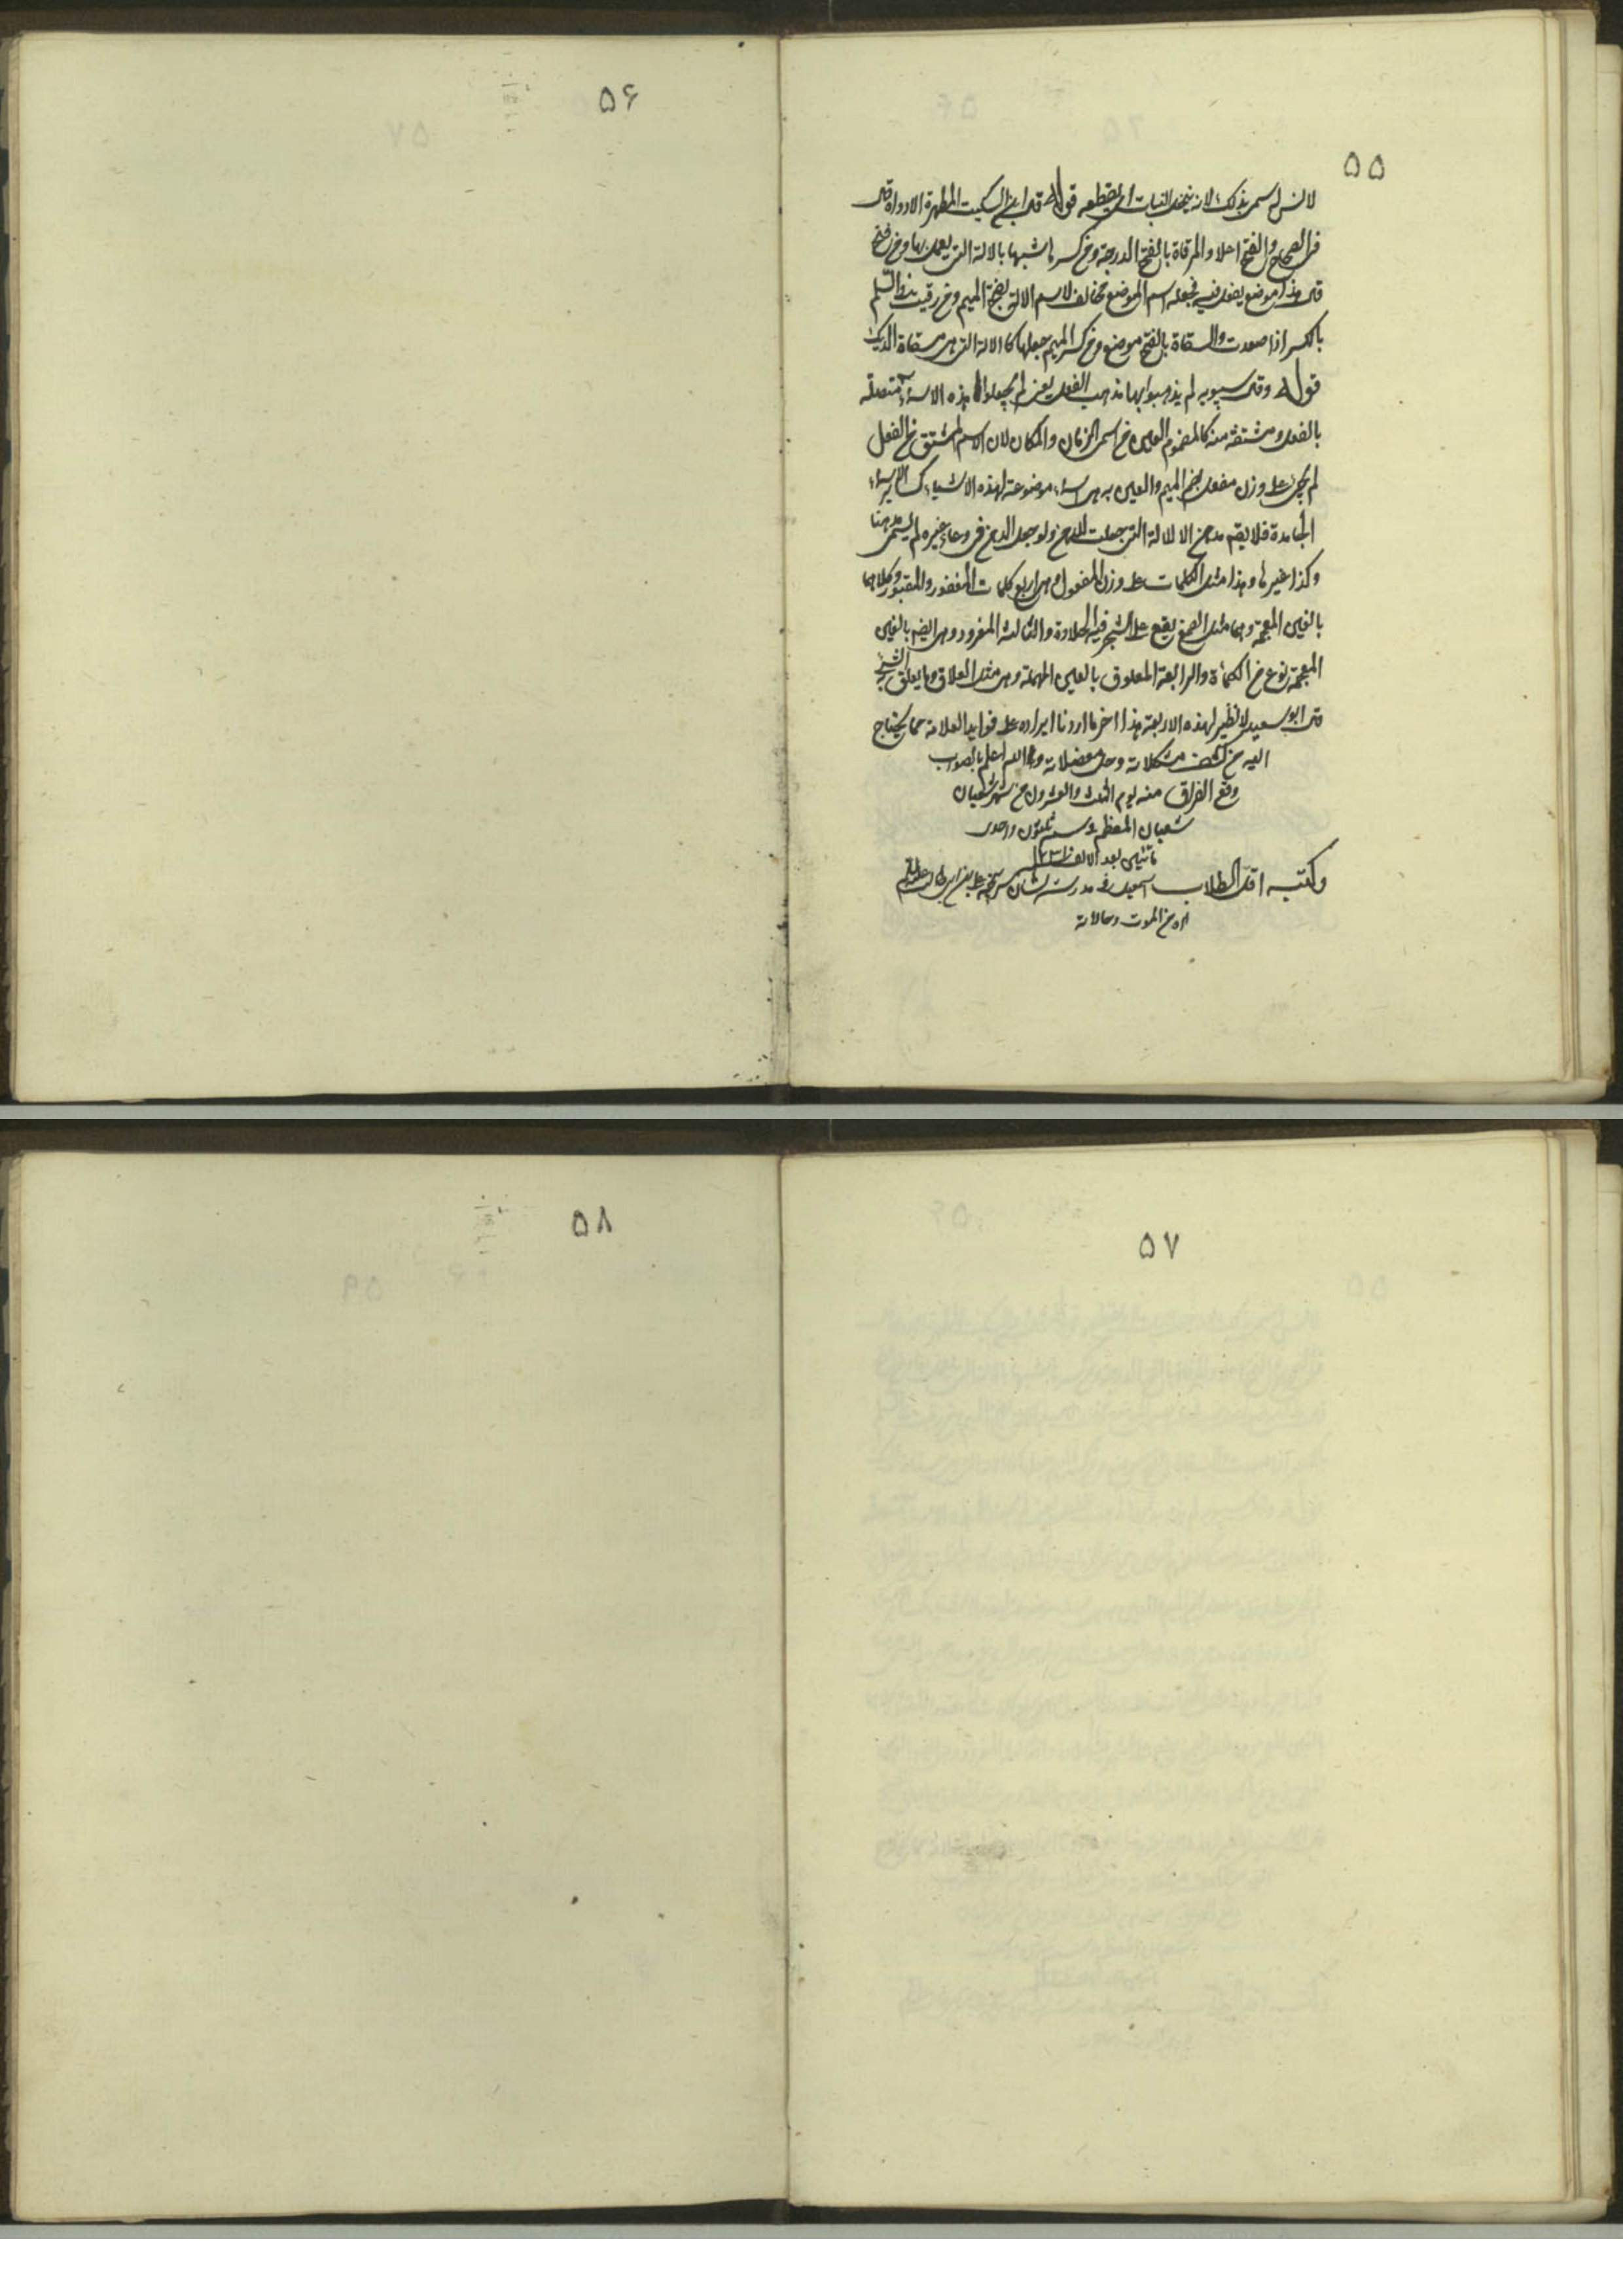 ۵۵
لانس اسمى بذلك لانه ينجل النبات اى يقطعه قوله قال ابن السكيت المطهرة الاداوة قال
فى الصحاح والفتح اعلا والمرقاة بالفتح الدرجة ومن كسرها شبهها بالالة التى يعمل بها ومن فتح
قال هذا موضع يفعل فيه فجعله اسم الموضع مخالفا لاسم الالة بفتح الميم ومن رقيت السلم
بالكسر اذا صعدت والمسقاة بالفتح موضع ومن كسر الميم جعلها كالالة التى هى مسقاة الديك
قوله وقال سيبويه لم يذهبوا بها مذهب الفعل يعنى لم يجعلوا هذه الاسماء متصلة
بالفعل ومشتقة منه كالمضموم العين من اسمى الزمان والمكان لان الاسم المشتق من الفعل
لم يجئ على وزن مفعل بضم الميم والعين بل هى اسماء موضوعة لهذه الاشياء كسائر الاسماء
الجامدة فلا يقم مدهن الا للالة التى جعلت للدهن ولو جعل الدهن فى وعاء غيره لم يسمى مدهنا
وكذا غيرها وهذا مثل الكلمات على وزن المفعول وهى اربع كلمات المغفور والمغثور وكلاهما
بالغين المعجمة وهما مثل الصمغ يقع على الشجر فيه الحلاوة والثالثة المغرود وهى ايضم بالغين
المعجمة نوع من الكمأة والرابعة المعلوق بالعين المهملة وهى مثل العلاق وما يعلق به الشئ
قال ابو سعيد لا نظير لهذه الاربعة هذا اخر ما اردنا ايراده على فوايد العلامة مما يحتاج
اليه من كشف مشكلاته وحل معضلاته والله اعلم بالصواب
وقع الفراق منه يوم الثلث والعشرون من شهر شعبان
شعبان المعظم سنه ثلثون واحدى
مأتين بعد الالف ۱۲۳۱
وكتبه اقل الطلاب اسمعيل فى مدرسة
اه من الموت وحالاته
۵۶
۵۷
۵۸